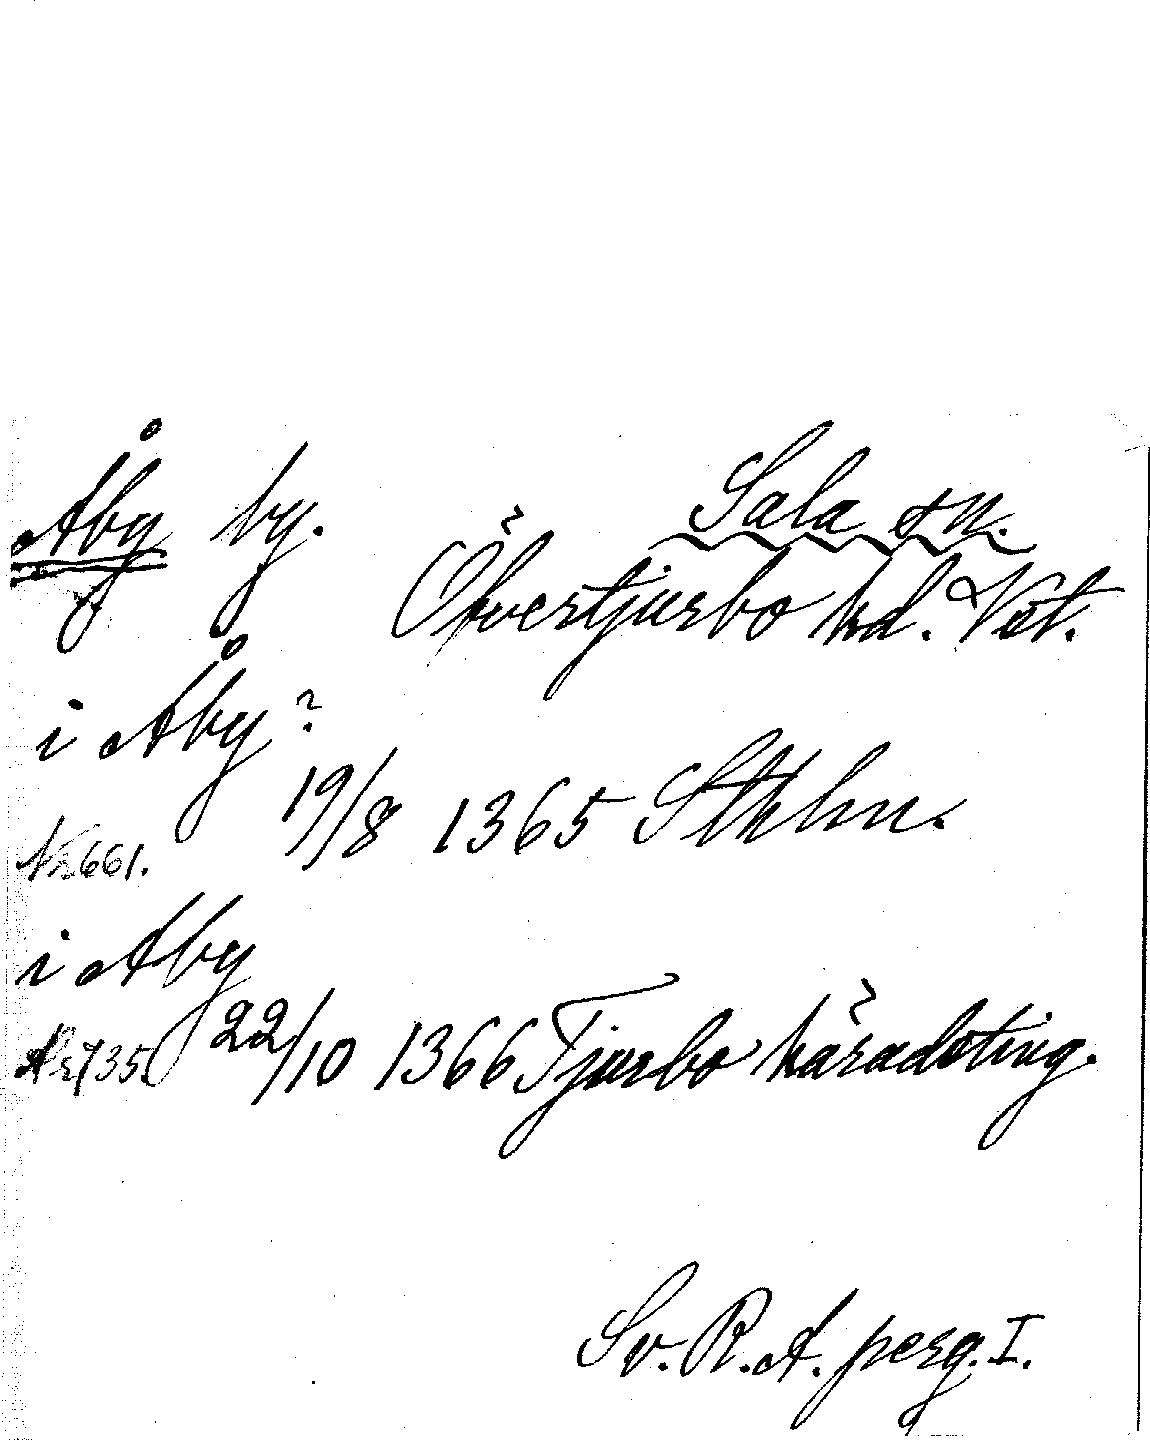 Åby by. Sala sn.
Övertjurbo hd. Vst.
i Åby?
19/8 1365 Sthlm.
Nr 661.
i Åby
22/10 1366 Tjurbo häradsting.
Nr 735.
Sv. R. A. perg. I.